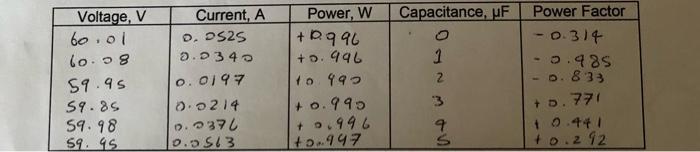 Voltage, V Current, A Power, W Capacitance, µF Power Factor
60.01 0.0525 +0.996 0 -0.314
60.08 0.0340 +0.996 1 -0.485
59.95 0.0197 +0.990 2 -0.833
59.85 0.0214 +0.990 3 +0.771
59.98 0.0376 +0.996 4 +0.441
59.95 0.0563 +0.997 5 +0.292